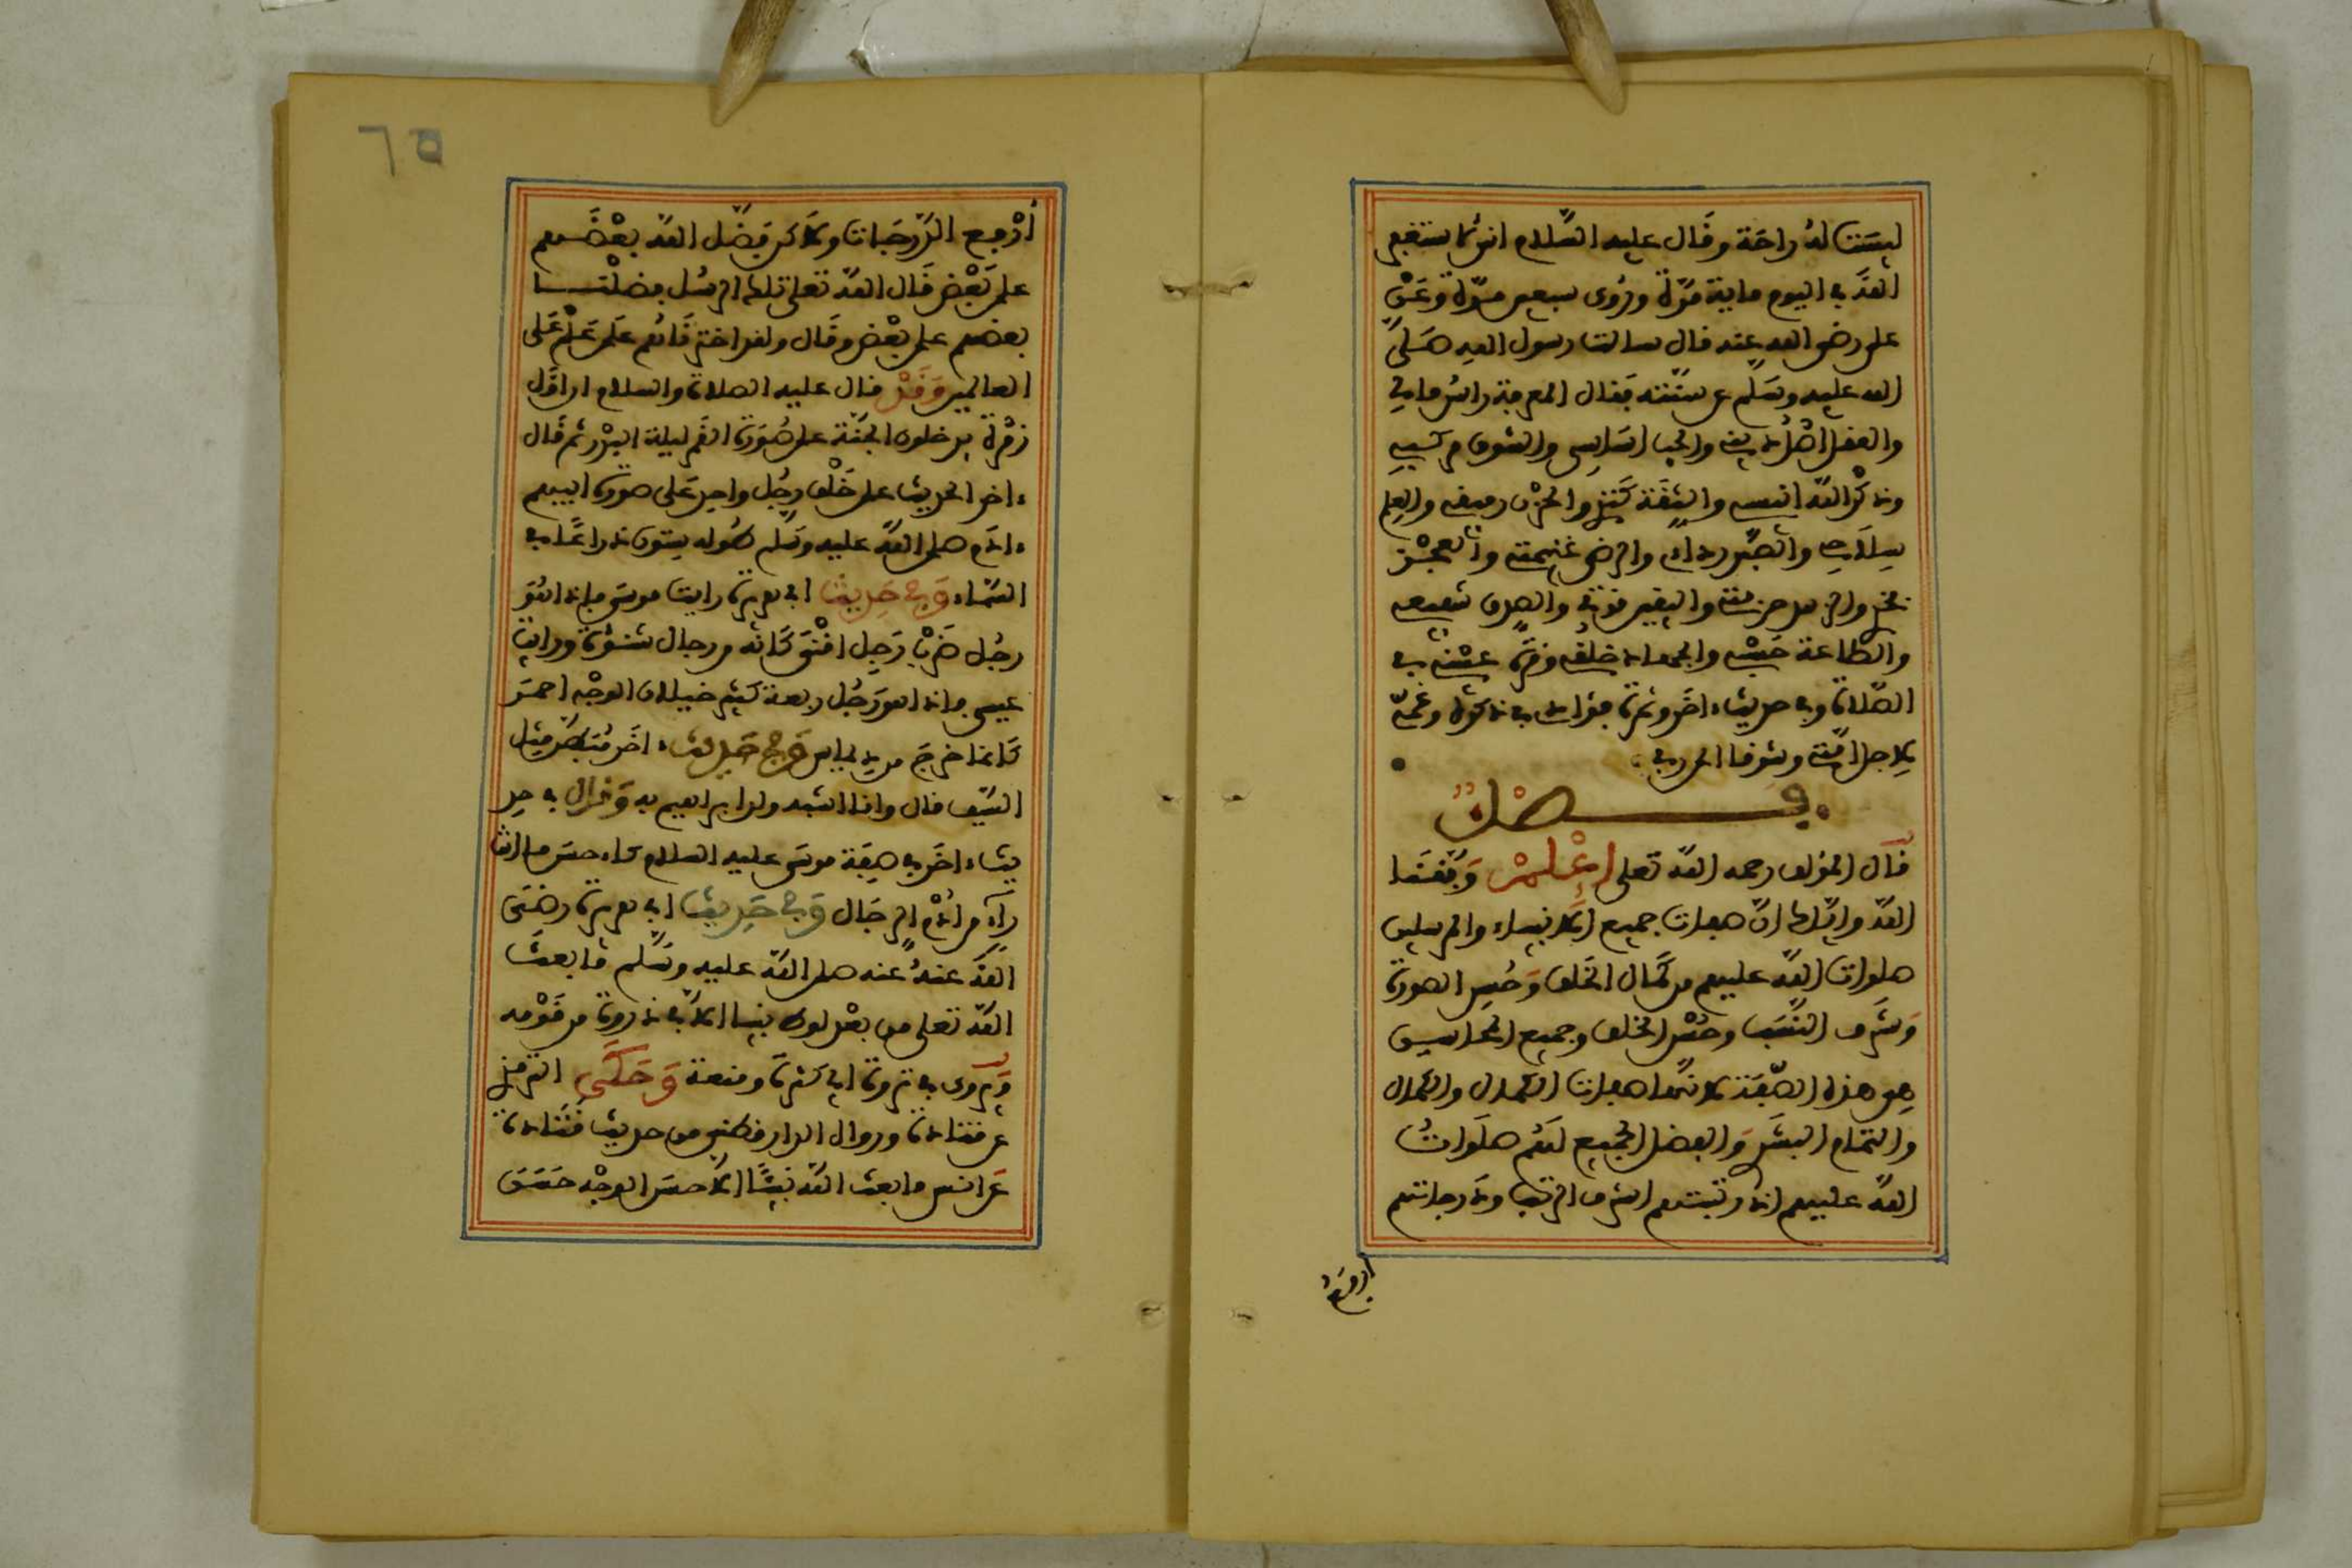 ليست له راحة وقال عليه السلام اني لاستغفر
الله في اليوم ماية مرة وروى سبعين مرة وعن
علي رضي الله عنه قال سالت رسول الله صلى
الله عليه وسلم عن سنته فقال المعرفة راس مالي
والعقل اصل ديني والحب اساسي والشوق مركبي
وذكر الله انيسي والثقة كنزي والحزن رفيقي والعلم
سلاحي والصبر رداءي والرضى غنيمتي والعجز
فخري والزهد حرفتي واليقين قوتي والصدق شفيعي
والطاعة حسبي والجهاد خلقي وقرة عيني في
الصلاة وفي حديث ءاخر وثمرة فؤادي في ذكره وغمي
لاجل امتي وشوقي الى ربي
فصل
قال المؤلف رحمه الله تعلى اعلم وفقنا
الله واياك ان صفات جميع الانبياء والمرسلين
صلوات الله عليهم من كمال الخلق وحسن الصورة
وشرف النسب وحسن الخلق وجميع المحاسن
هي هذه الصفة لانها صفات الكمال والكمال
والتمام البشر والفضل الجميع لهم صلوات
الله عليهم اذ رتبتهم اشرف الرتب ودرجاتهم
ارفع
٦٥
ارفع الدرجات ولاكن فضل الله بعضهم
على بعض قال الله تعلى تلك الرسل فضلنا
بعضهم على بعض وقال ولقد اخترناهم على علم على
العالمين وقد قال عليه الصلاة والسلام ان اول
زمرة يدخلون الجنة على صورة القمر ليلة البدر ثم قال
ءاخر الحديث على خلق رجل واحد على صورة ابيهم
ءادم صلى الله عليه وسلم طوله ستون ذراعا في
السماء وفي حديث ابي هريرة رايت موسى فاذا هو
رجل ضرب رجل اقنى كانه من رجال شنوءة ورايت
عيسى فاذا هو رجل ربعة كثير خيلان الوجه احمر
كانما خرج من ديماس وفي حديث ءاخر مبطن مثل
السيف قال وانا اشبه ولد ابراهيم به وقال في حد
يث ءاخر في صفة موسى عليه السلام كاحسن ما انت
راء من ادم الرجال وفي حديث ابي هريرة رضي
الله عنه عنه صلى الله عليه وسلم ما بعث
الله تعلى من بعد لوط نبيا الا في ذروة من قومه
ويروى في ثروة اي كثرة ومنعة وحكى الترمذي
عن قتادة ورواه الدارقطني من حديث قتادة
عن انس ما بعث الله نبيئا الا حسن الوجه حسن